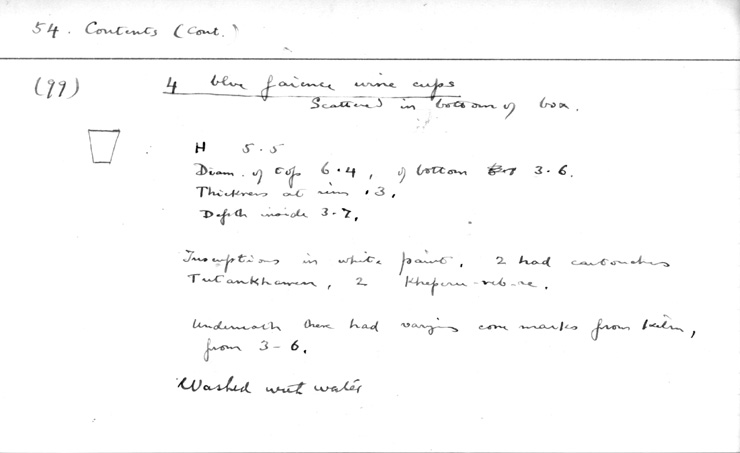 54. Contents (Cont.)
(99) 4 blue faience wine cups
Scattered in bottom of box.
H 5.5
Diam. of top 6.4, of bottom 3.6.
Thickness at rim .3.
Depth inside 3.7.
Inscriptions in white paint, 2 had cartouches
Tutankhamen, 2 Kheperu-neb-re.
Underneath these had varying cone marks from kiln,
from 3-6.
Washed with water